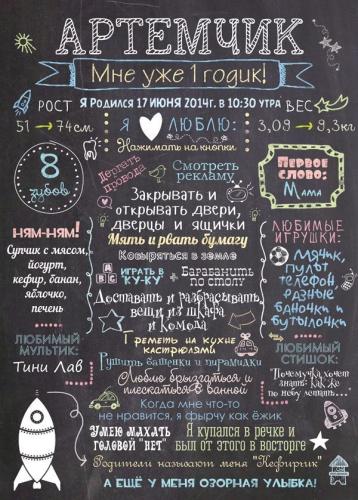 АРТЕМЧИК
Мне уже 1 годик!
РОСТ
Я РОДИЛСЯ 17 ИЮНЯ 2014Г. В 10:30 УТРА
ВЕС
51 → 74см
Я ЛЮБЛЮ:
3,09 → 9,3кг
Нажимать на кнопки
8
зубов
Дергать
провода
Смотреть
рекламу
Первое
слово:
Мама
Закрывать и
открывать двери,
дверцы и ящички
Мять и рвать бумагу
Ковыряться в земле
ИГРАТЬ В
КУ-КУ
Барабанить
по столу
Доставать и разбрасывать
вещи из шкафа
и комода
НЯМ-НЯМ!
Супчик с мясом,
йогурт,
кефир, банан,
яблочко,
печень
ЛЮБИМЫЕ
ИГРУШКИ:
Мячик,
пульт
телефон
разные
баночки и
бутылочки
Греметь на кухне
кастрюлями
ЛЮБИМЫЙ
МУЛЬТИК:
Тини Лав
Рушить башенки и пирамидки
Люблю брызгаться и
плескаться в ванной
Когда мне что-то
не нравится, я фырчу как ёжик
ЛЮБИМЫЙ
СТИШОК:
"Почемучка хочет
знать: как же
по небу летать..."
УМЕЮ МАХАТЬ
ГОЛОВОЙ "НЕТ"
Я купался в речке и
был от этого в восторге
Родители называют меня "Кефирчик"
А ЕЩЁ У МЕНЯ ОЗОРНАЯ УЛЫБКА!